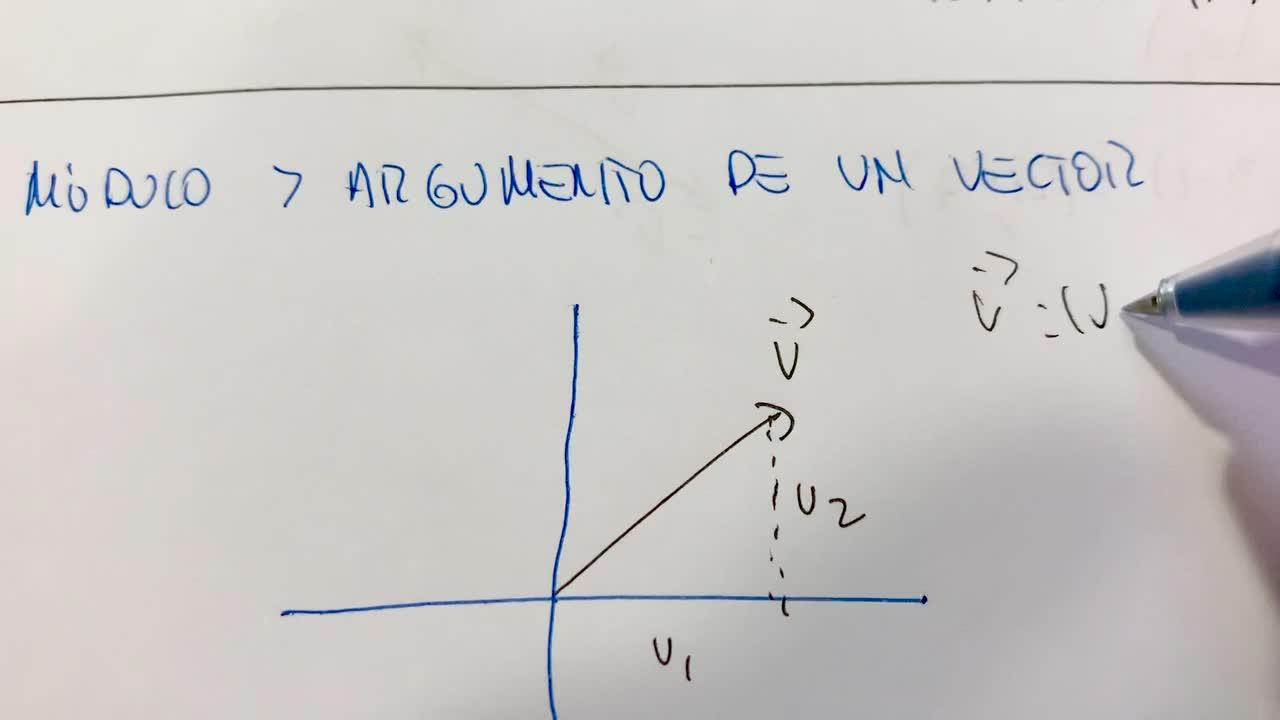 MÓDULO Y ARGUMENTO DE UN VECTOR
v⃗ = (v
v⃗
v2
v1